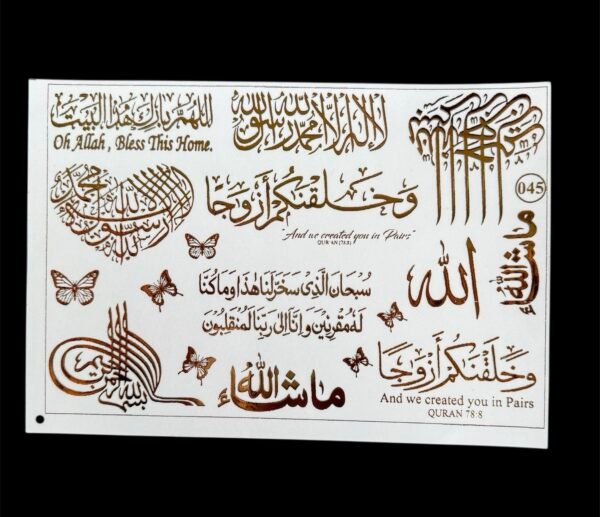 اللهم بارك هذا البيت
Oh Allah, Bless This Home.
لا إله إلا الله محمد رسول الله
045
وَخَلَقْنَكُمْ أَزْوَجًا
"And we created you in Pairs"
QUR'AN (78:8)
لا إله إلا الله محمد رسول الله
ما شاء الله
الله
سُبحَانَ الَّذِى سَخَّرَلَنَا هٰذَا وَمَا كُنَّا
لَهُ مُقرِنِينَ وَاِنَّا اِلٰى رَبِّنَا لَمُنقَلِبُونَ
بسم الله الرحمن الرحيم
ما شاء الله
وَخَلَقْنَكُمْ أَزْوَجًا
And we created you in Pairs
QURAN 78:8